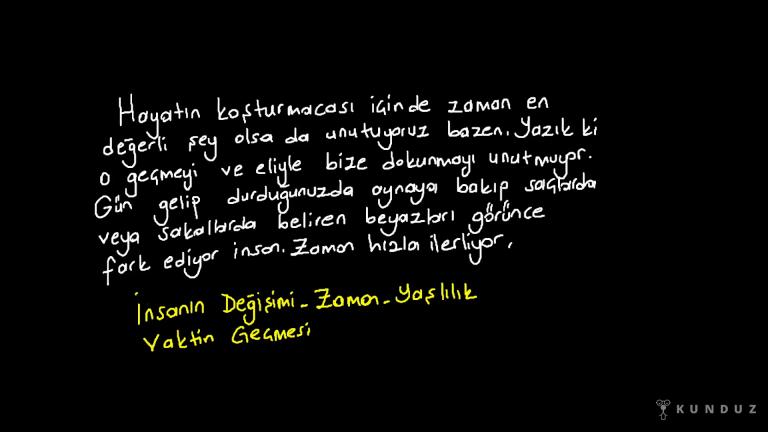 Hayatın koşturmacası içinde zaman en
değerli şey olsa da unutuyoruz bazen. Yazık ki
o geçmeyi ve eliyle bize dokunmayı unutmuyor.
Gün gelip durduğunuzda aynaya bakıp saçlarda
veya sakallarda beliren beyazları görünce
fark ediyor insan. Zaman hızla ilerliyor.
İnsanın Değişimi - Zaman - Yaşlılık
Vaktin Geçmesi
KUNDUZ